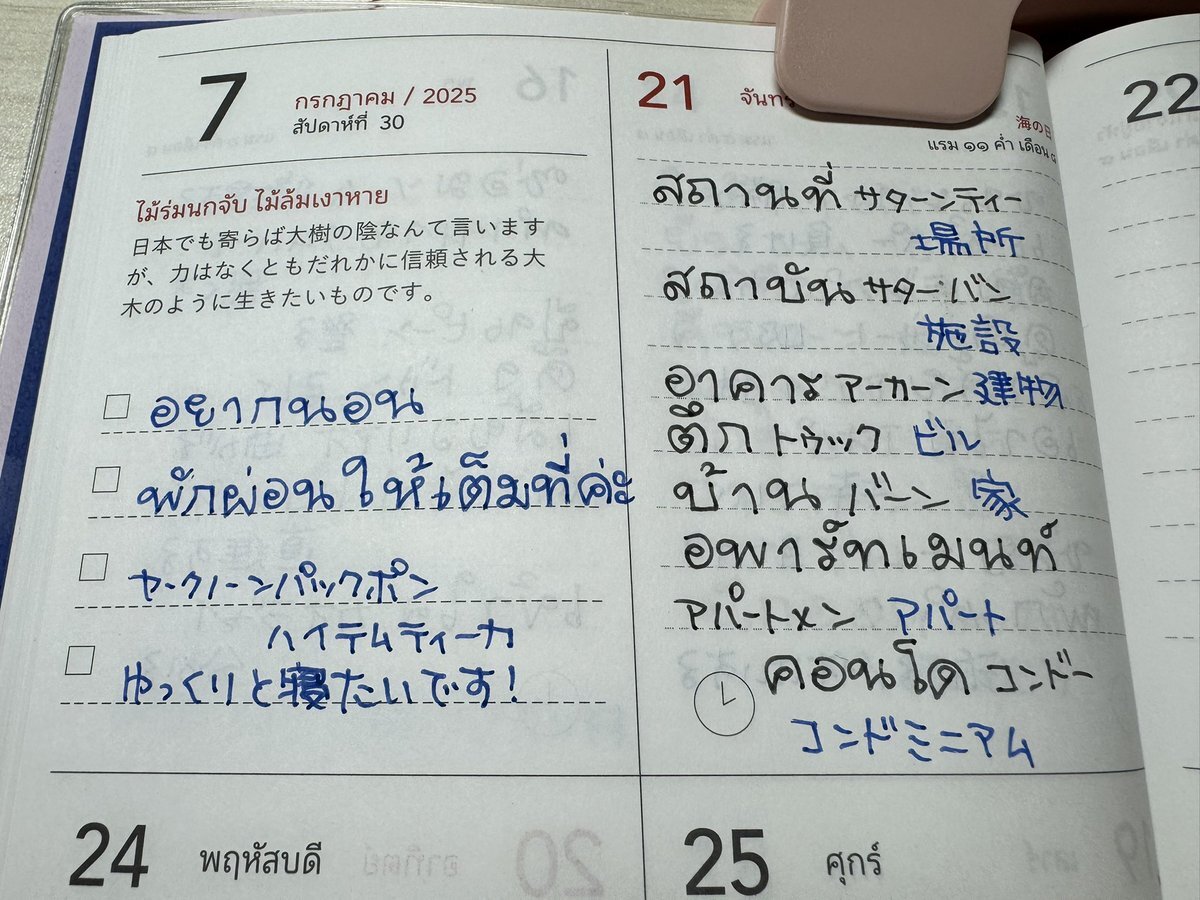 7
กรกฎาคม / 2025
สัปดาห์ที่ 30
ไม้ร่มนกจับ ไม้ล้มเงาหาย
日本でも寄らば大樹の陰なんて言います
が、力はなくともだれかに信頼される大
木のように生きたいものです。
อยากนอน
พักผ่อนให้เต็มที่ค่ะ
ヤークノーンパックポン
ハイテムティーカ
ゆっくりと寝たいです！
21
海の日
แรม ๑๑ ค่ำ เดือน ๘
สถานที่ サターンティー
場所
สถาบัน サターバン
施設
อาคาร アーカーン 建物
ตึก トゥック ビル
บ้าน バーン 家
อพาร์ทเมนท์
アパートメン アパート
คอนโด コンドー
コンドミニアム
22
24 พฤหัสบดี
25 ศุกร์